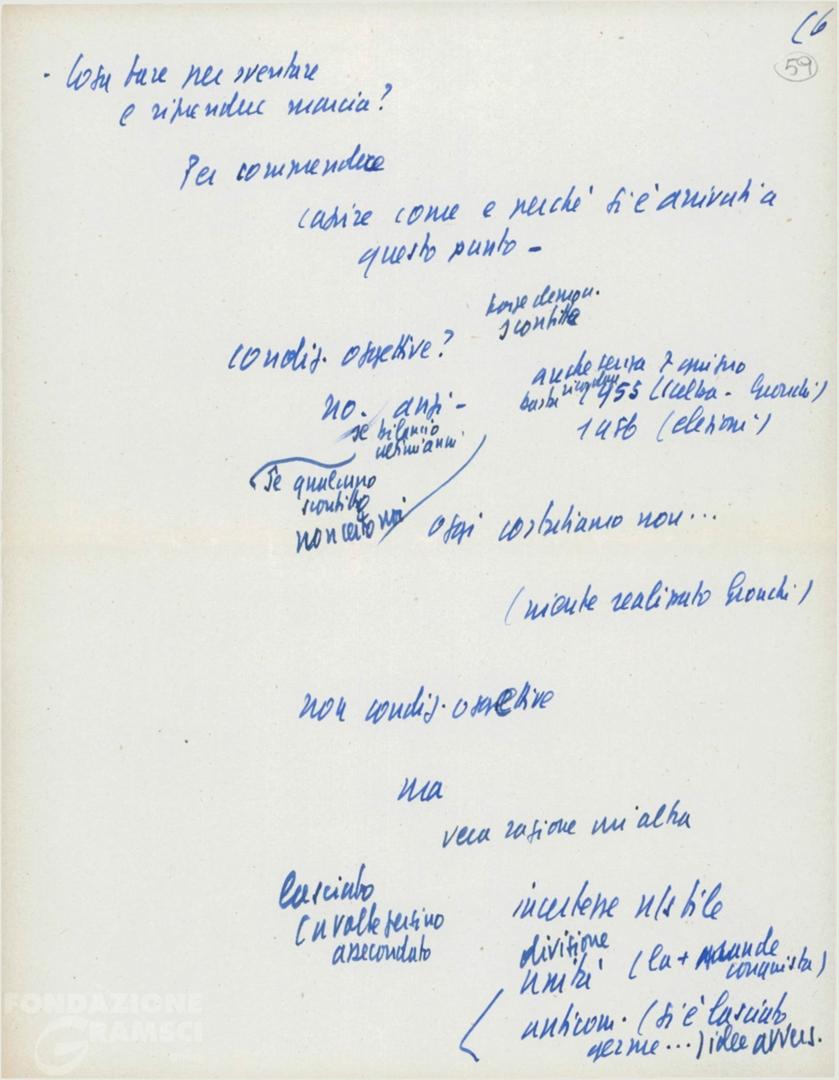 16
59
- Cosa fare per sventare
e riprendere marcia?
Per comprendere
capire come e perché si è arrivati a
questo punto -
forze democr.
sconfitte
condiz. oggettive?
anche senza 7 giugno
basta ricordare 1955 (Scelba - Gronchi)
1956 (elezioni)
no. anzi -
se bilancio
ultimi anni
Se qualcuno
sconfitto
non certo noi
oggi constatiamo non...
(niente realizzato Gronchi)
non condiz. oggettive
ma
vera ragione un'altra
lasciato
(a volte persino
assecondato
incertezze n/s file
divisione
unità (la + grande
conquista)
anticom. (si è lasciato
germe...) idee avvers.
FONDAZIONE
GRAMSCI